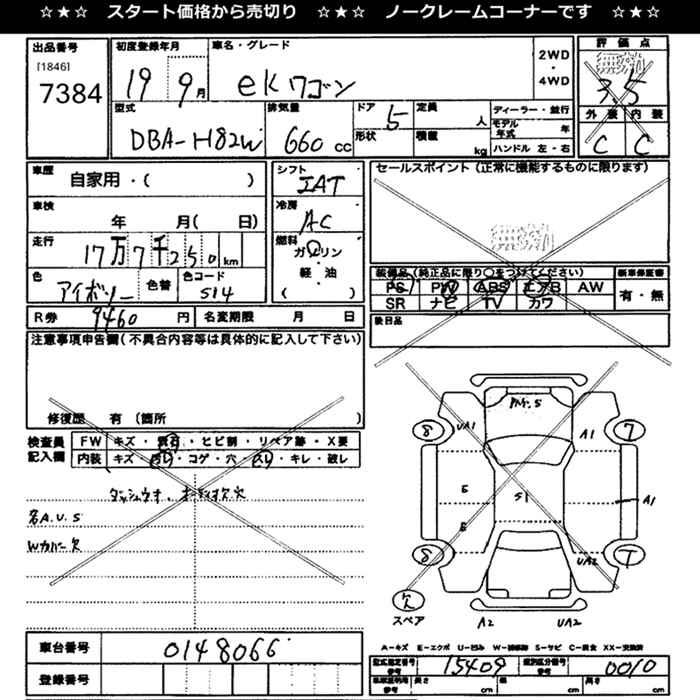 ☆★☆ スタート価格から売切り ☆★☆ ノークレームコーナーです ☆★☆
出品番号
[1846]
7384
初度登録年月
19 9月
車名・グレード
eKワゴン
2WD
・
4WD
評価点
無効
3.5
外装 内装
C C
型式
DBA-H82W
排気量
660 cc
ドア 5
形状
定員 人
積載 kg
ディーラー・並行
モデル年式 年
ハンドル 左・右
車歴
自家用・( )
車検
年 月( 日)
走行
17万7千250km
色
アイボリー
色替
色コード
S14
シフト
IAT
冷房
AC
燃料
ガソリン
・
軽・油
( )
セールスポイント(正常に機能するものに限ります)
無効
装備品(純正品に限り○をつけてください)
PS PW ABS エアB AW
SR ナビ TV カワ
新車保証書
有・無
後日品
R券 9460 円
名変期限 月 日
注意事項申告欄(不具合内容等は具体的に記入して下さい)
修復歴 有(箇所 )
検査員記入欄
FW キズ・飛石・ヒビ割・リペア跡・X要
内装 キズ・汚レ・コゲ・穴・スレ・キレ・破レ
ダッシュウオ.オーディオ欠穴
各A.U.S
Wカバー欠
8 UA1 A1 7
E S1 A1
E
8 UA2 7
欠
スペア
A2 UA2
A-キズ E-エクボ U-凹み W-補修跡 S-サビ C-腐食 XX-交換済
車台番号
0148066
登録番号
型式指定番号 参考 15409
類別区分番号 参考 0010
長さ cm 幅 cm 高さ cm